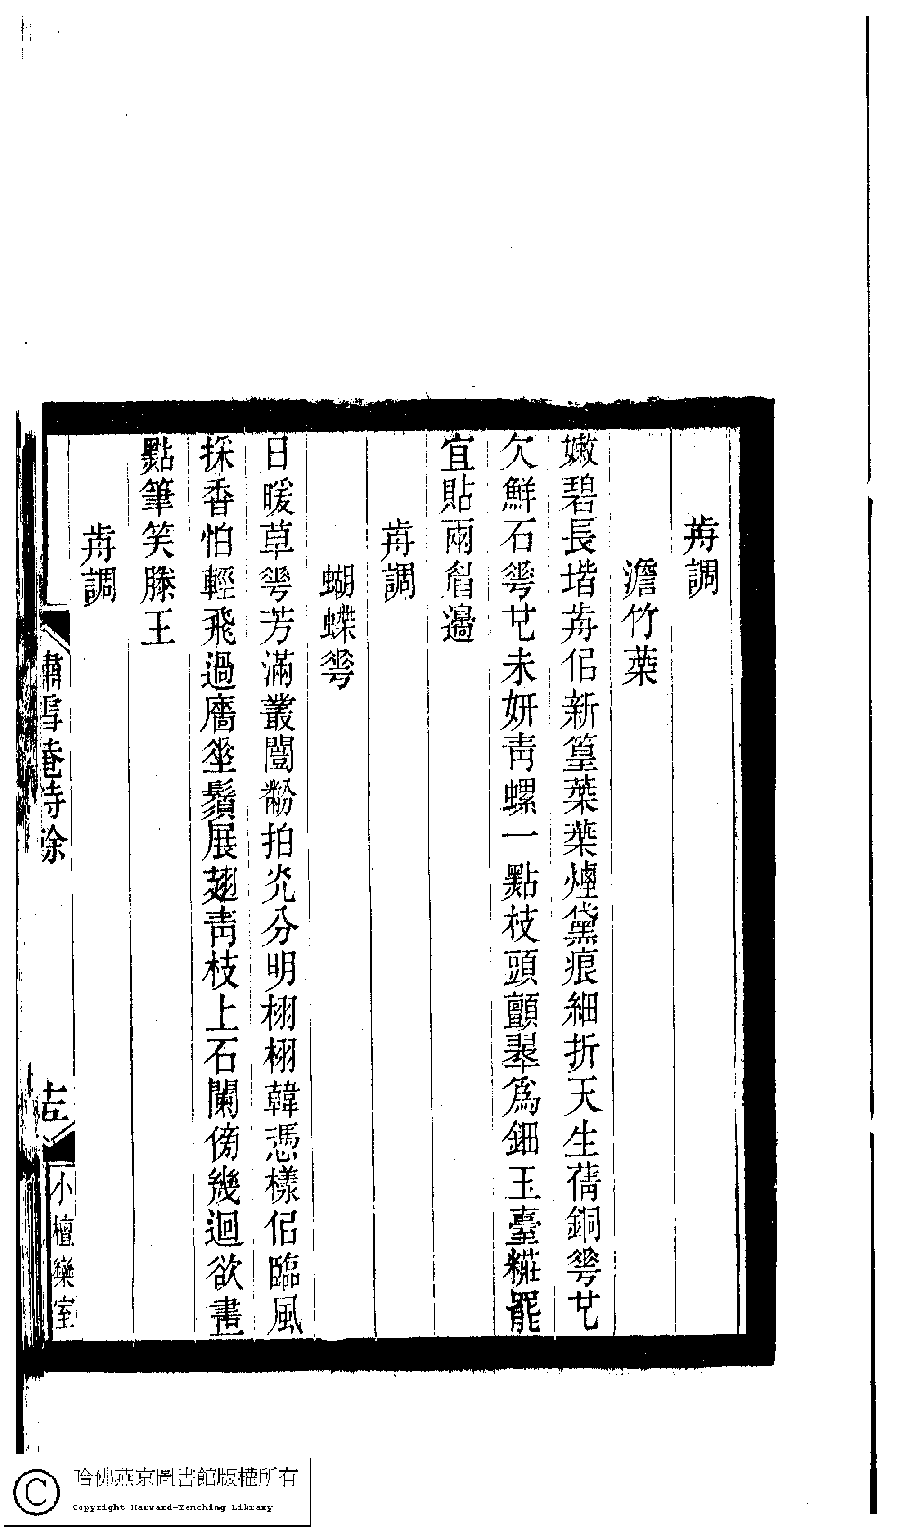 歬調
澹竹葉
嫩碧長堦歬侶新篁葉葉煙黛痕細折天生蒨銅𠌶也
欠鮮石𠌶也未妍青螺一點枝頭顫翠為鈿玉臺糚罷
宜貼兩眉邊
歬調
蝴蝶𠌶
日暖草𠌶芳滿叢闓粉拍炗分明栩栩韓憑樣侶臨風
採香怕輕飛過牆坐鬚展翅青枝上石闌傍幾迴欲畫
點筆笑滕王
歬調
嘯雪庵詩餘
小檀欒室
哈佛燕京圖書館版權所有
Copyright Harvard-Yenching Library